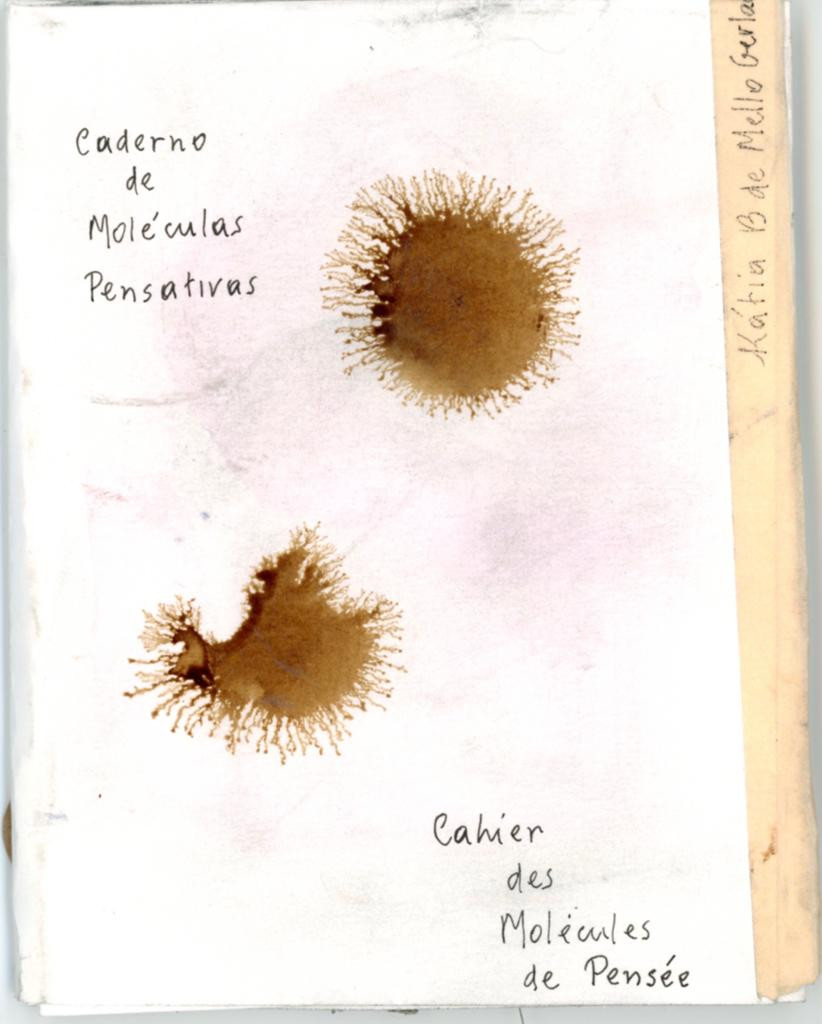 Caderno
de
Moléculas
Pensativas
Kátia B de Mello
Cahier
des
Molécules
de Pensée